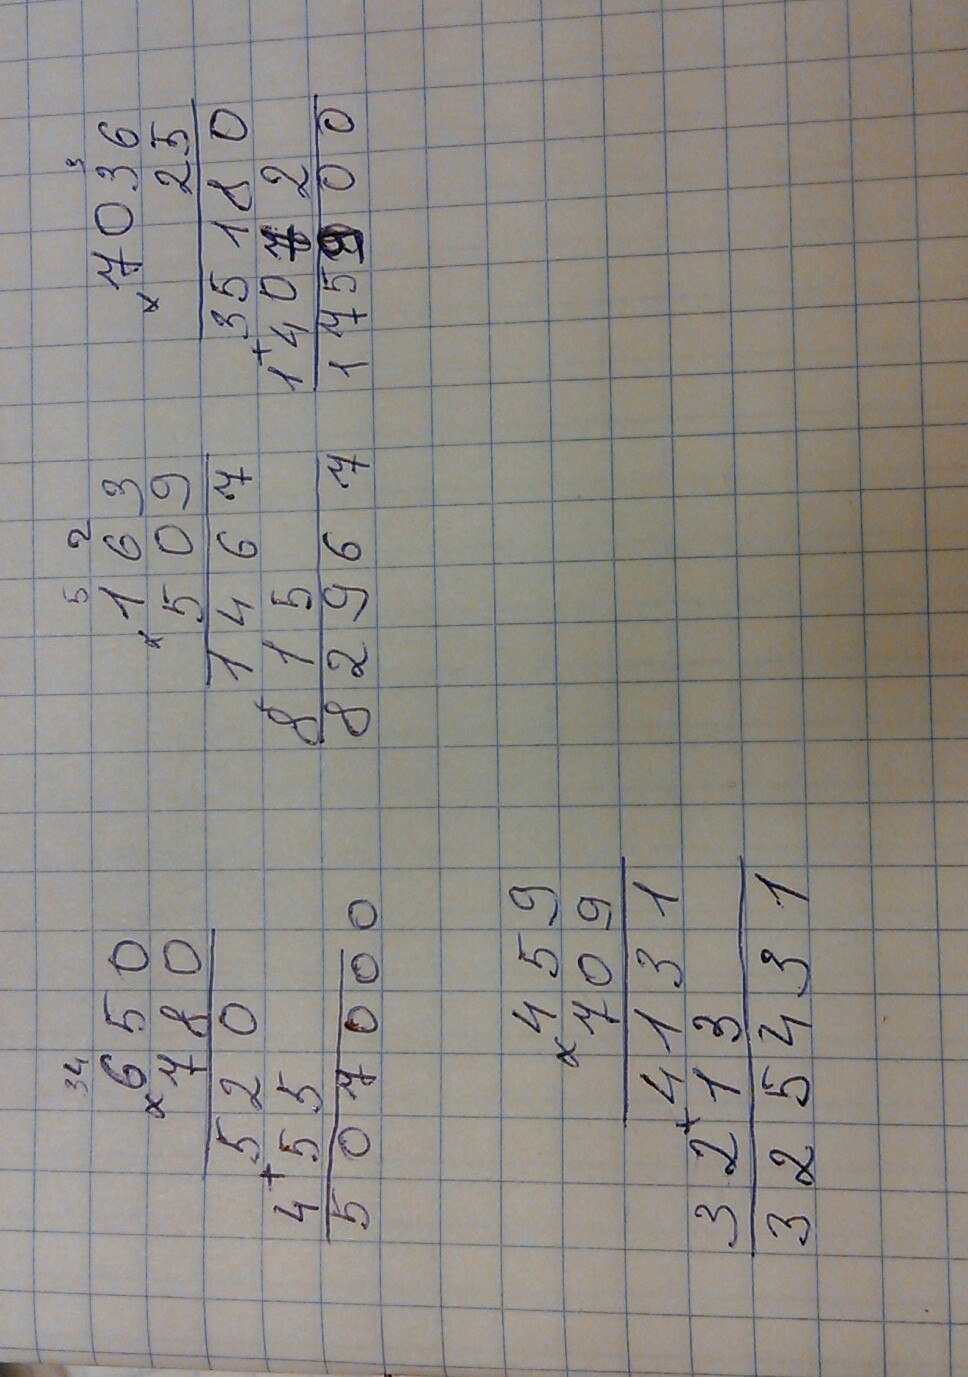 34
× 650
780
520
+ 455
507000
5 2
× 163
509
1467
815
82967
3
× 7036
25
35180
+ 14072
175900
× 459
709
4131
+ 3213
325431